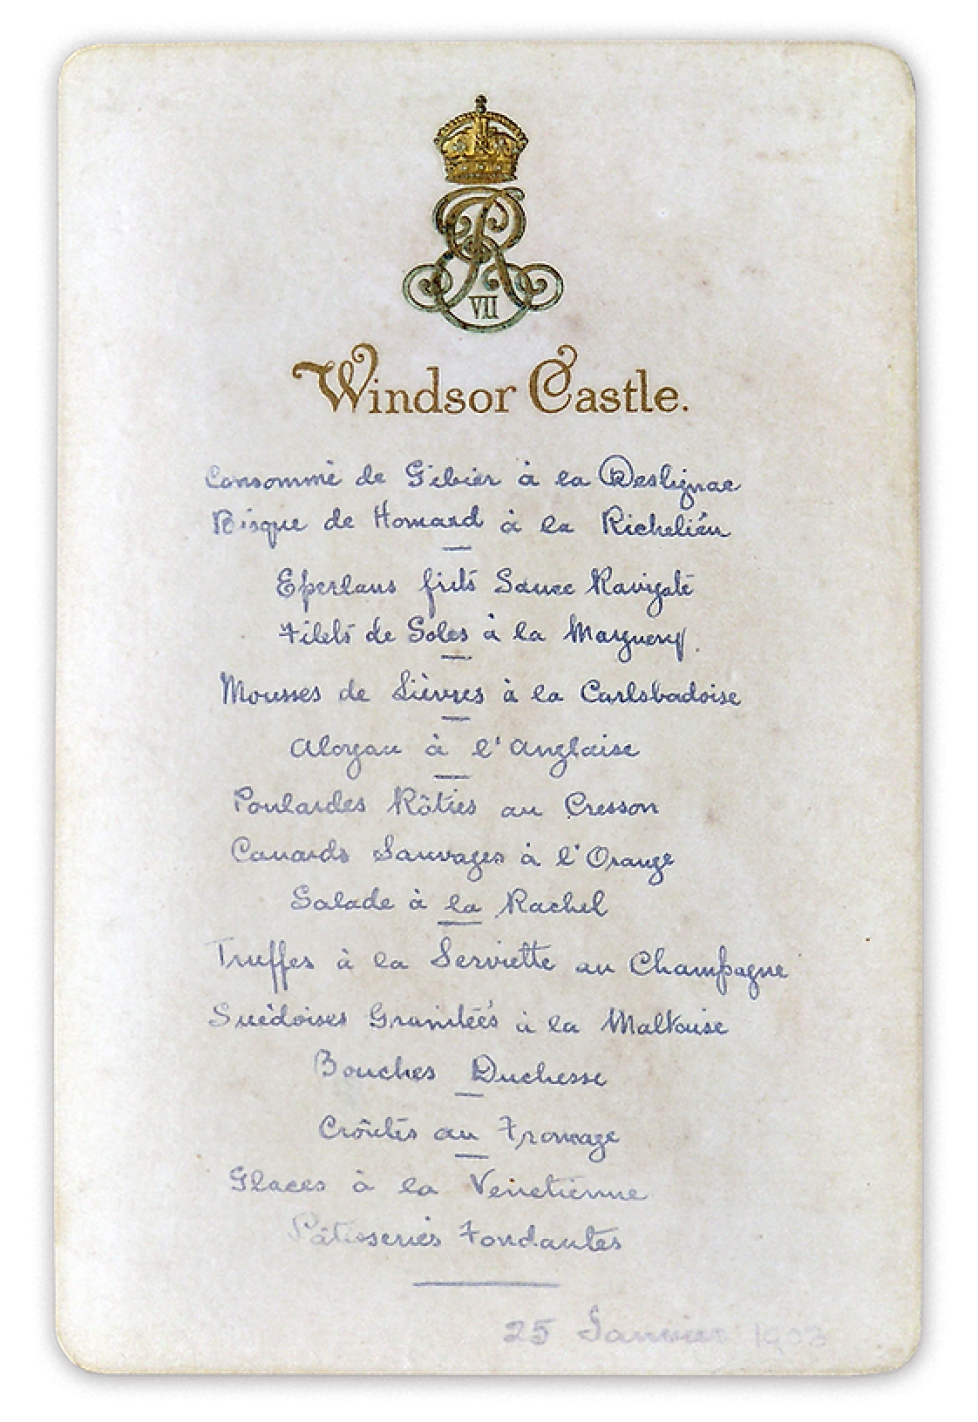 VII
Windsor Castle.
Consommé de Gibier à la Deslignac
Bisque de Homard à la Richeliéu
Eperlans frits Sauce Ravigote
Filets de Soles à la Marguery.
Mousses de Lièvres à la Carlsbadoise
Aloyau à l'Anglaise
Poulardes Rôties au Cresson
Canards Sauvages à l'Orange
Salade à la Rachel
Truffes à la Serviette au Champagne
Suèdoises Granitées à la Maltaise
Bouches Duchesse
Croûtes au Fromage
Glaces à la Venetienne
Pâtisseries Fondantes
25 Janvier 1903